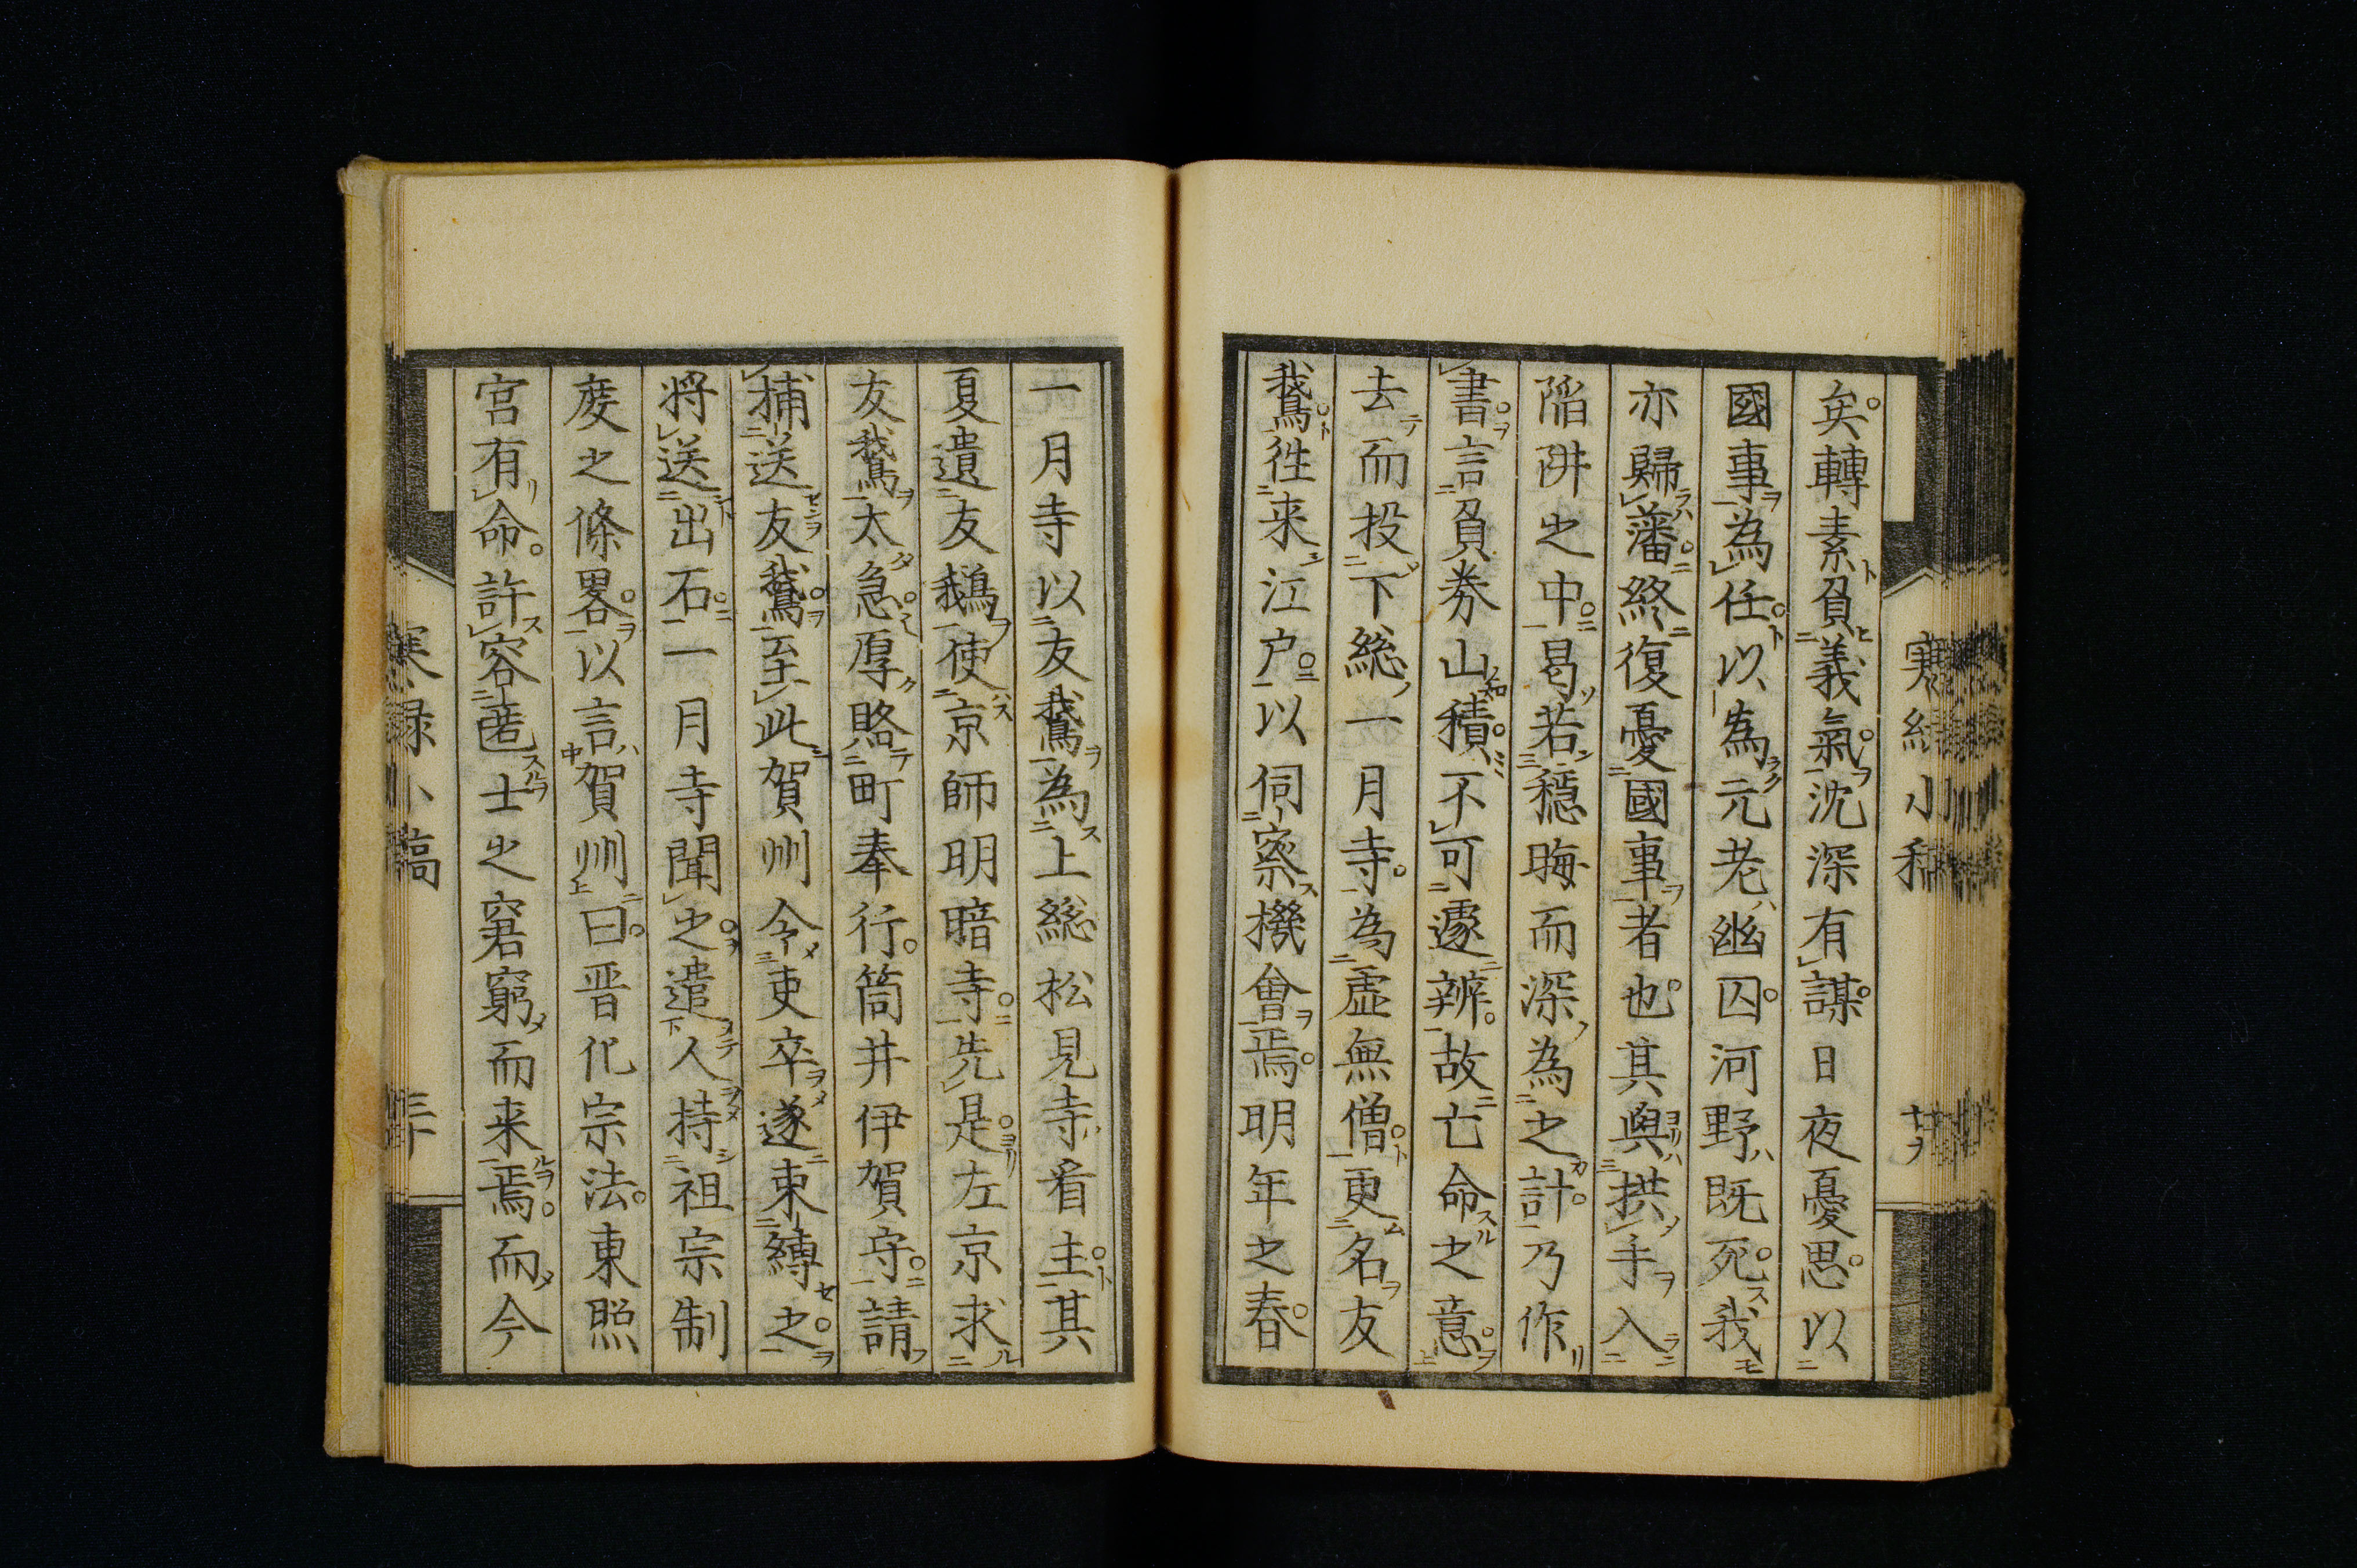 矣轉素負義氣沈深有謀日夜憂思以
國事為任以為元老幽囚河野既死我
亦歸藩終復憂國事者也其與拱手入
陥阱之中曷若穏晦而深為之計乃作
書言負券山積不可遽辨故亡命之意
去而投下総一月寺為虚無僧更名友
鵞徃来江户以伺察機會焉明年之春
一月寺以友鵞為上総松見寺看主其
夏遺友鵝使京師明暗寺先是左京求
友鵞太急厚賂町奉行筒井伊賀守請
捕送友鵞至此賀州令吏卒遂束縛之
将送出石一月寺聞之遣人持祖宗制
度之條畧以言賀州曰晋化宗法東照
宮有命許容匿士之窘窮而来焉而今